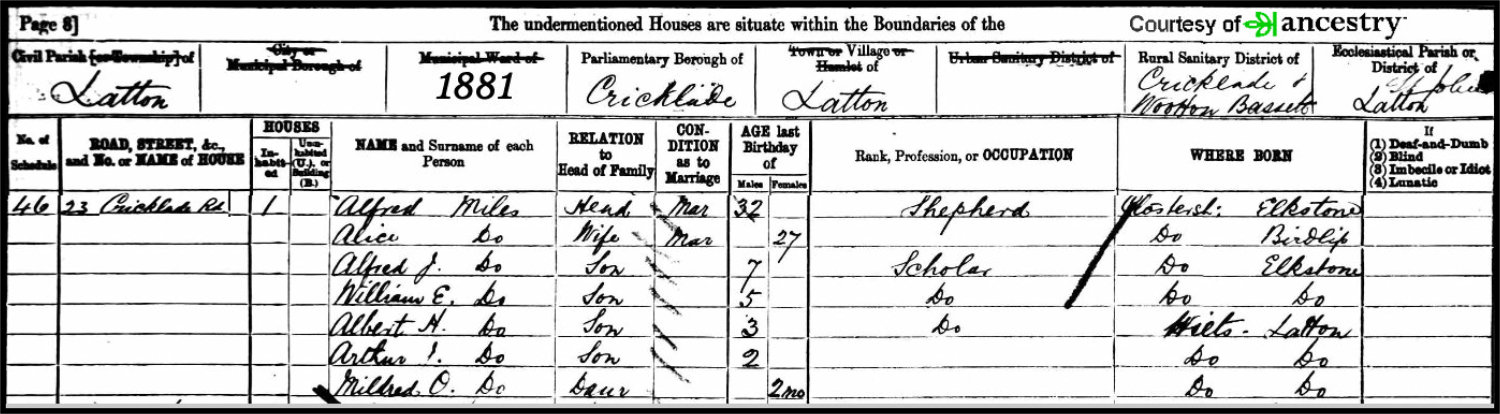 Page 8] The undermentioned Houses are situate within the Boundaries of the Courtesy of ancestry
Civil Parish [or Township] of City or Municipal Borough of Municipal Ward of Parliamentary Borough of Town or Village or Hamlet of Urban Sanitary District of Rural Sanitary District of Ecclesiastical Parish or District of
Latton 1881 Cricklade Latton Cricklade & Wootton Bassett Latton
No. of Schedule ROAD, STREET, &c., and No. or NAME of HOUSE HOUSES Inhabited Uninhabited (U.), or Building (B.) NAME and Surname of each Person RELATION to Head of Family CONDITION as to Marriage AGE last Birthday of Males Females Rank, Profession, or OCCUPATION WHERE BORN If (1) Deaf-and-Dumb (2) Blind (3) Imbecile or Idiot (4) Lunatic
46 23 Cricklade Rd 1 Alfred Miles Head Mar 32 Shepherd Glostersh: Elkstone
Alice Do Wife Mar 27 Do Birdlip
Alfred J. Do Son 7 Scholar Do Elkstone
William E. Do Son 5 Do Do Do
Albert H. Do Son 3 Do Wilts. Latton
Arthur Do Son 2 Do Do
Mildred O. Do Daur 2mo Do Do